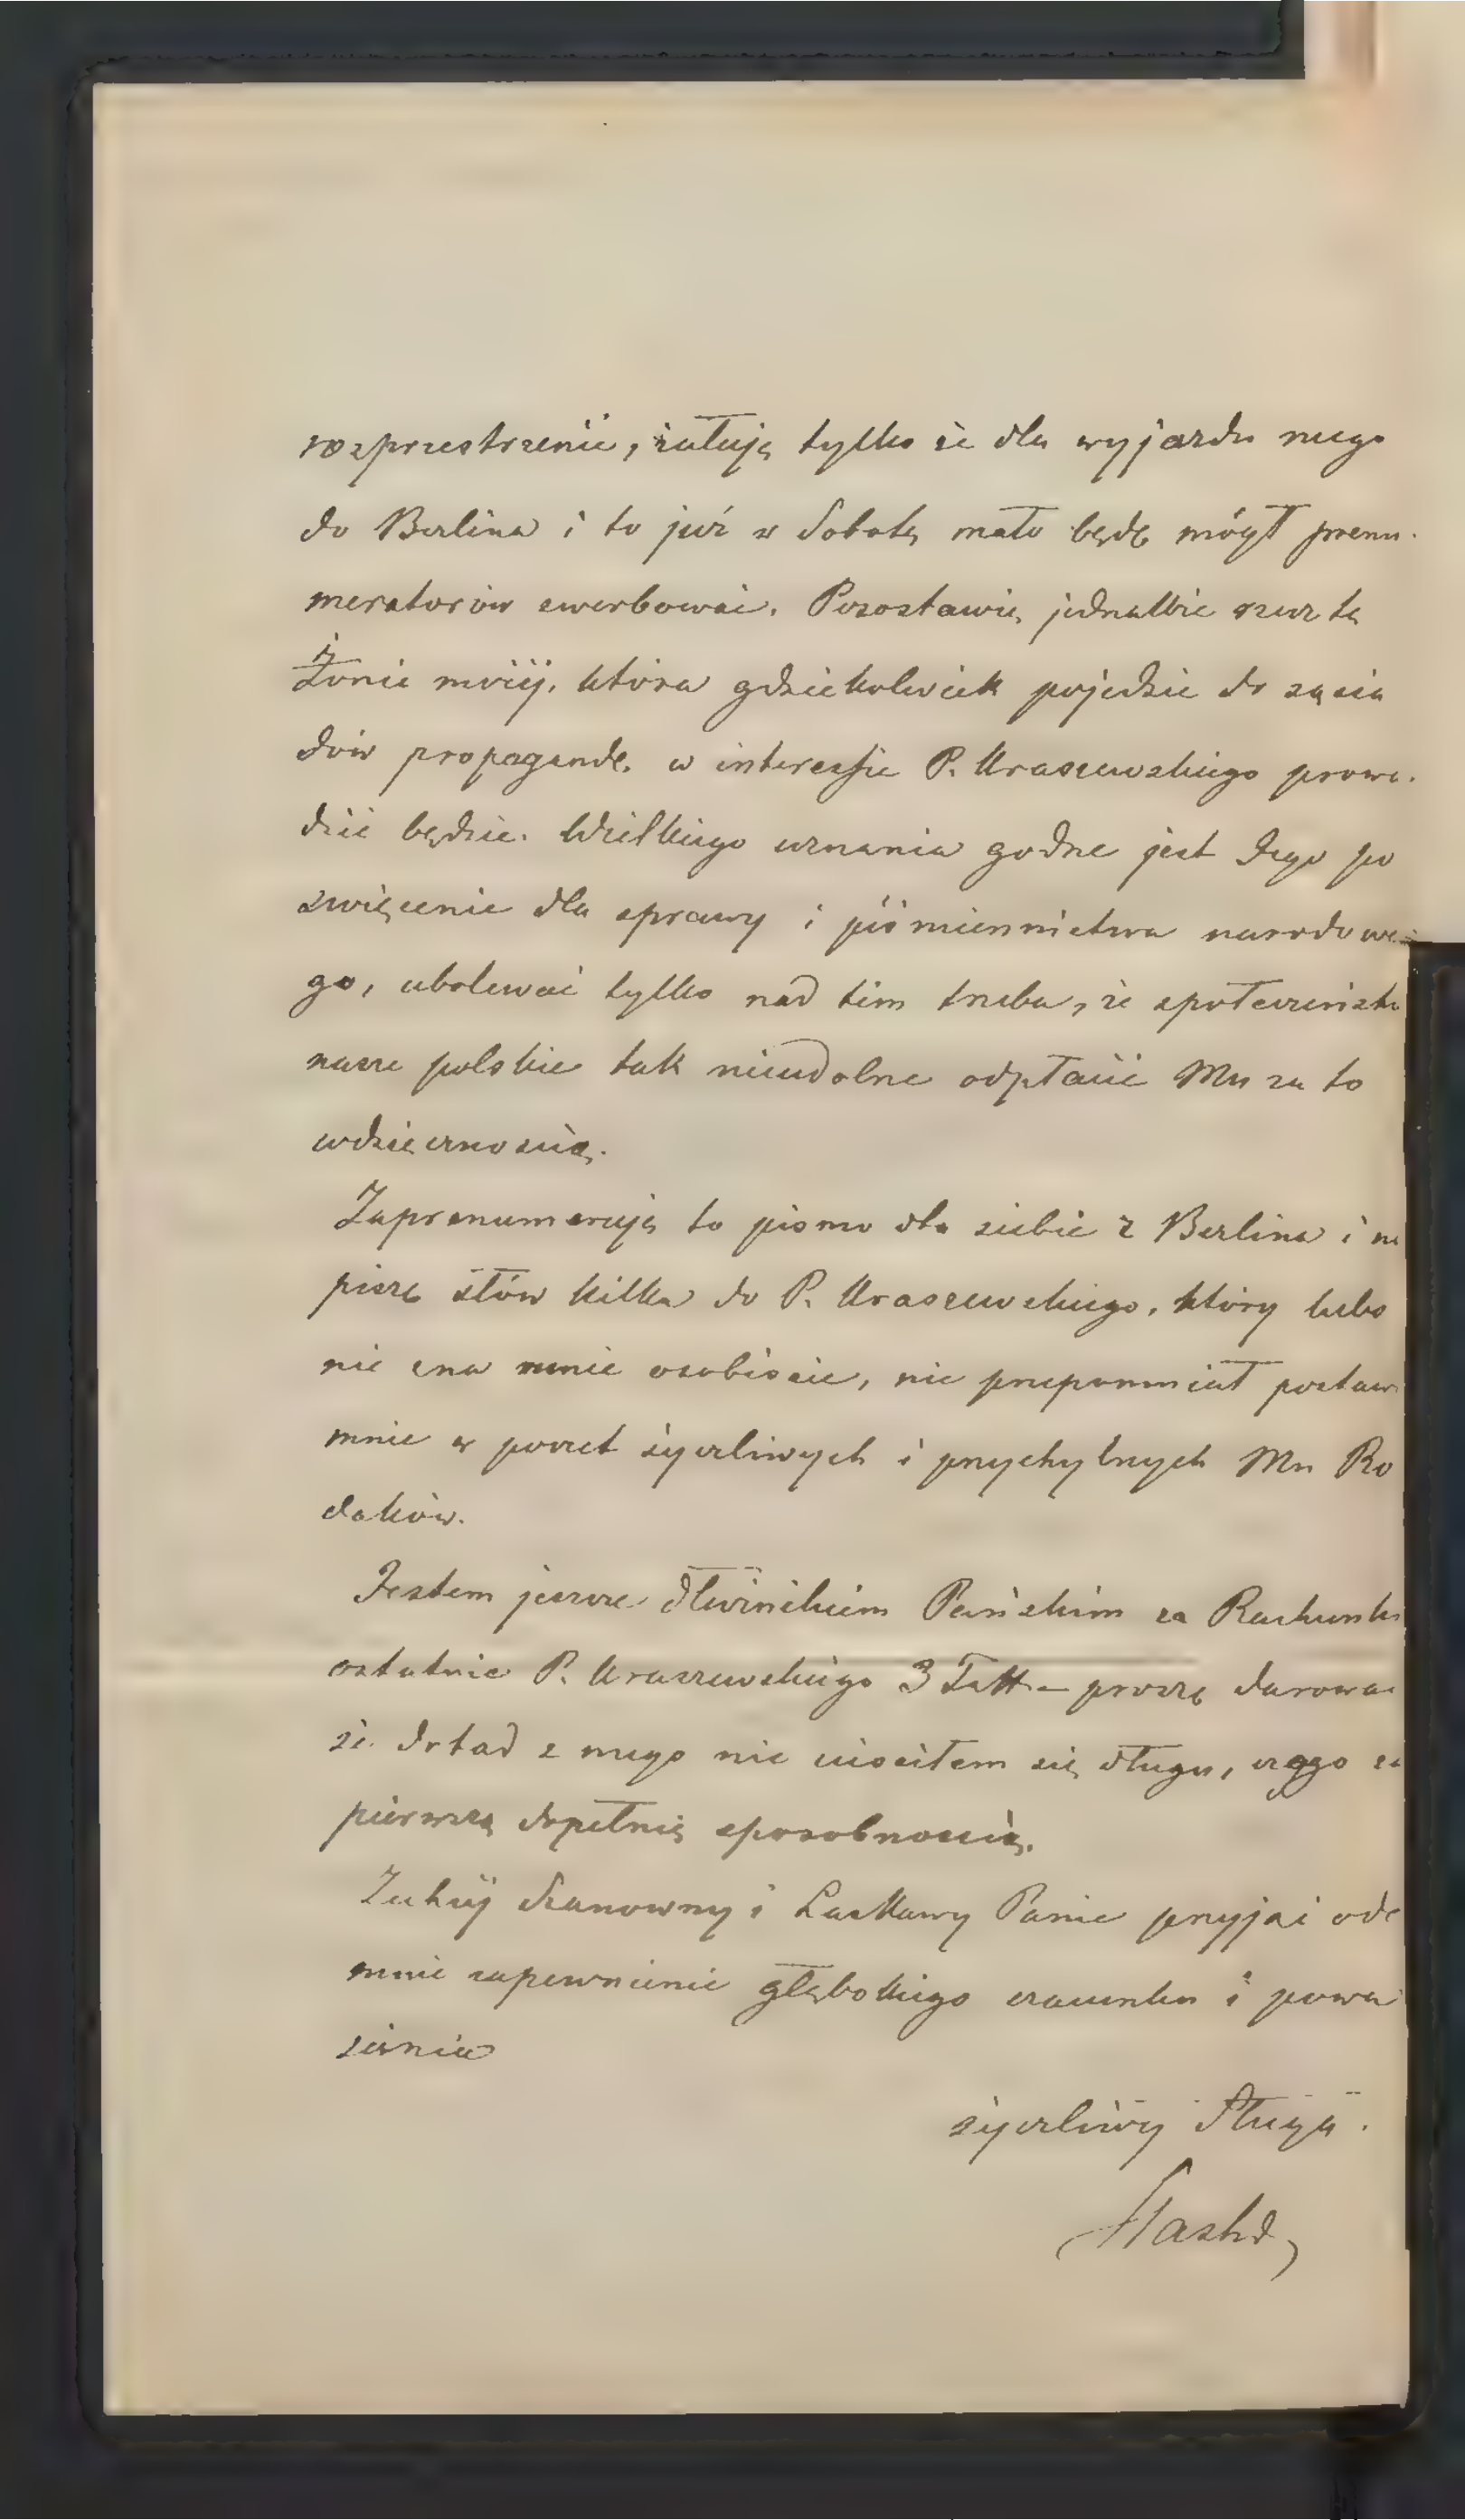 rozprzestrzenić, żałuję tylko że dla wyjazdu mego
do Berlina i to już w Sobotę mało będę mógł prenu-
meratorów zwerbować. Pozostawię jednakże rzecz tę
Żonie mojéj, która gdziekolwiek pojedzie do sąsia
dów propagandę w interessie P. Kraszewskiego prowa-
dzić będzie. Wielkiego uznania godne jest Jego po
święcenie dla sprawy i piśmiennictwa narodowe-
go, ubolewać tylko nad tém trzeba, że społeczeństwo
nasze polskie tak nieudolne odpłacić Mu za to
wdzięcznością.
Zaprenumeruję to pismo dla siebie z Berlina i na
piszę słów kilka do P. Kraszewskiego, który lubo
nie zna mnie osobiście, nie przepomniał postawić
mnie w poczet życzliwych i przychylnych Mu Ro
daków.
Jestem jeszcze dłużnikiem Pańskim za Rachunki
ostatnie P. Kraszewskiego 3 proszę darować
że dotąd z mego nie uiściłem się długu, czego za
pierwszą dopełnię sposobnością.
Zechciéj Szanowny i Łaskawy Panie przyjąć ode
mnie zapewnienie głębokiego szacunku i powa
żania
życzliwy Sługa.